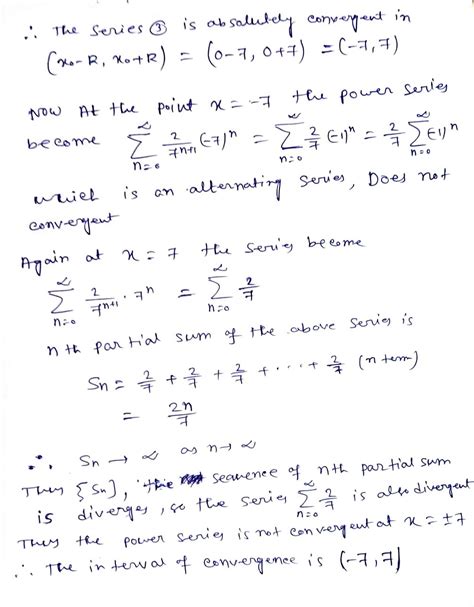 ∴ The series ③ is absolutely convergent in
(x₀-R, x₀+R) = (0-7, 0+7) = (-7, 7)
Now At the point x = -7 the power series
become ∑_{n=0}^{∞} 2/7^{n+1} (-7)^n = ∑_{n=0}^{∞} 2/7 (-1)^n = 2/7 ∑_{n=0}^{∞} (-1)^n
which is an alternating series, Does not
convergent
Again at x = 7 the series become
∑_{n=0}^{∞} 2/7^{n+1} · 7^n = ∑_{n=0}^{∞} 2/7
nth partial sum of the above series is
Sn = 2/7 + 2/7 + 2/7 + ··· + 2/7 (n term)
= 2n/7
∴ Sn → ∞ as n → ∞
Thus {Sn}, the sequence of nth partial sum
is diverges, so the series ∑_{n=0}^{∞} 2/7 is also divergent
Thus the power series is not convergent at x = ±7
∴ The interval of convergence is (-7, 7)